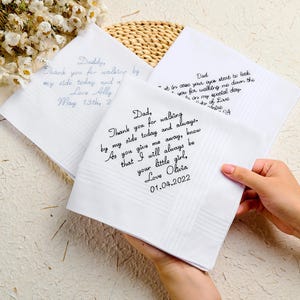 Daddy,
Thank you for walking by
my side today and
Love Ally
May 13th, 2
Dad
in case your eyes start to leak
you for walking me down the
on my special day
Love
Dad,
Thank you for walking
by my side today and always.
As you give me away, know
that I will always be
your little girl,
Love Olivia
01.04.2022